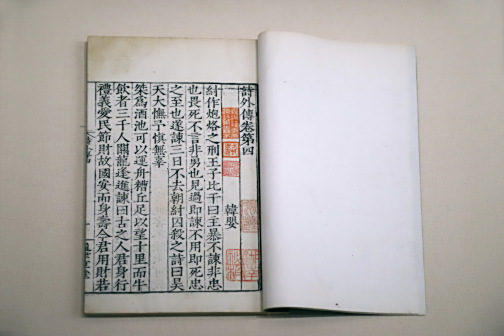 詩外傳卷第四
韓嬰
紂作炮烙之刑王子比干曰主暴不諫非忠
也畏死不言非勇也見過即諫不用即死忠
之至也遂諫三日不去朝紂囚殺之詩曰昊
天大憮予慎無辜
桀為酒池可以運舟糟丘足以望十里而牛
飲者三千人關龍逄進諫曰古之人君身行
禮義愛民節財故國安而身壽今君用財若